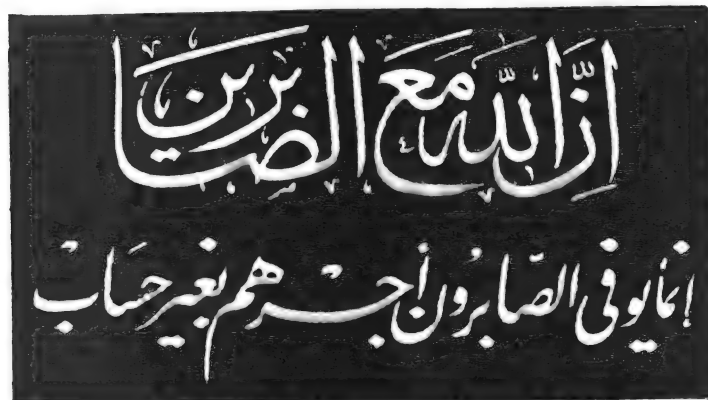 إنّ الله مع الصّابرين
إنما يوفى الصّابرون أجرهم بغير حسَاب